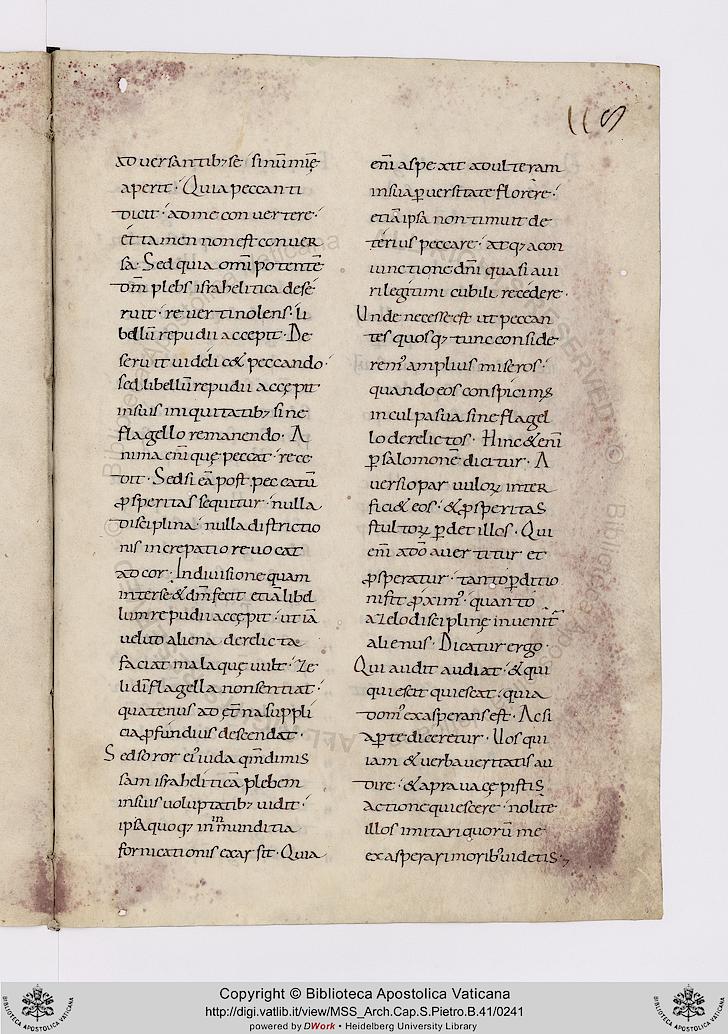 118
adversantib; se sinū mię
aperit · Quia peccanti
dicit · ad me convertere ·
et tamen non est conver
sa · Sed quia omīpotentē
dm̄ plebs israhelitica dese
ruit · reverti nolens · li
bellū repudii accepit · De
seruit videlic& peccando ·
sed libellū repudii accępit
in suis iniquitatib; sine
flagello remanendo · A
nima enī quę peccat · rece
dit · Sed si eā post peccatū
ꝓsperitas sequitur · nulla
disciplina · nulla districtio
nis increpatio revocat
ad cor · In divisione quam
inter se & dm̄ fecit etiā libel
lum repudii accępit · ut iā
velut aliena derelicta
faciat mala quę vult · Ze
li dī flagella non sentiat ·
quatenus ad ęt̄na suppli
cia ꝓfundius descendat ·
Sed soror ei' iuda qm̄ dimis
sam israheliticā plebem
in suis voluptatib; vidit ·
ipsa quoq; in inmunditia
fornicationis exarsit · Quia
enī aspexit adulteram
in sua ꝑversitate florere ·
etiā ipsa non timuit de
terius peccare · atq; a con
iunctione dn̄i quasi a vi
ri legitimi cubili recedere ·
Unde necesse est ut peccan
tes quosq; tunc conside
rem' amplius miseros ·
quando eos conspicim'
in culpa sua sine flagel
lo derelictos · Hinc & enī
ꝑ salomonē dicitur · A
versio parvuloꝝ inter
fici& eos · & ꝓsperitas
stultoꝝ ꝑdet illos · Qui
enī a dō avertitur et
ꝓsperatur · tanto ꝑditio
ni fit ꝓxim' · quanto
a zelo disciplinę invenit᷒
alienus · Dicatur ergo ·
Qui audit audiat · & qui
quiescit quiescat · quia
dom' exasperans est · Ac si
aꝑte diceretur · Vos qui
iam & verba veritatis au
dire · & a prava cępistis
actione quiescere · nolite
illos imitari quorū me
exasperari morib' videtis ·
Copyright © Biblioteca Apostolica Vaticana
http://digi.vatlib.it/view/MSS_Arch.Cap.S.Pietro.B.41/0241
powered by DWork • Heidelberg University Library
BIBLIOTECA APOSTOLICA VATICANA
BIBLIOTECA APOSTOLICA VATICANA